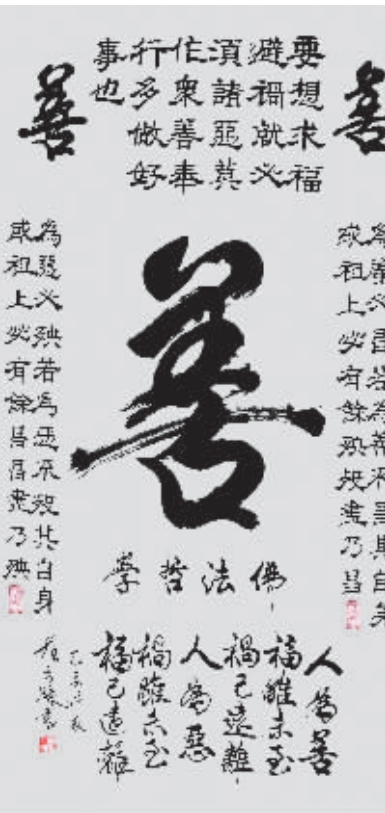 善
要想求福
避禍就必
須諸惡莫
作衆善奉
行多做好
事也
善
為善必昌若為善不昌其自身
或祖上必有餘殃殃盡乃昌
善
為惡必殃若為惡不殃其自身
或祖上必有餘昌昌盡乃殃
佛法哲學
人為善
福雖未至
禍已遠離
人為惡
禍雖未至
福已遠離